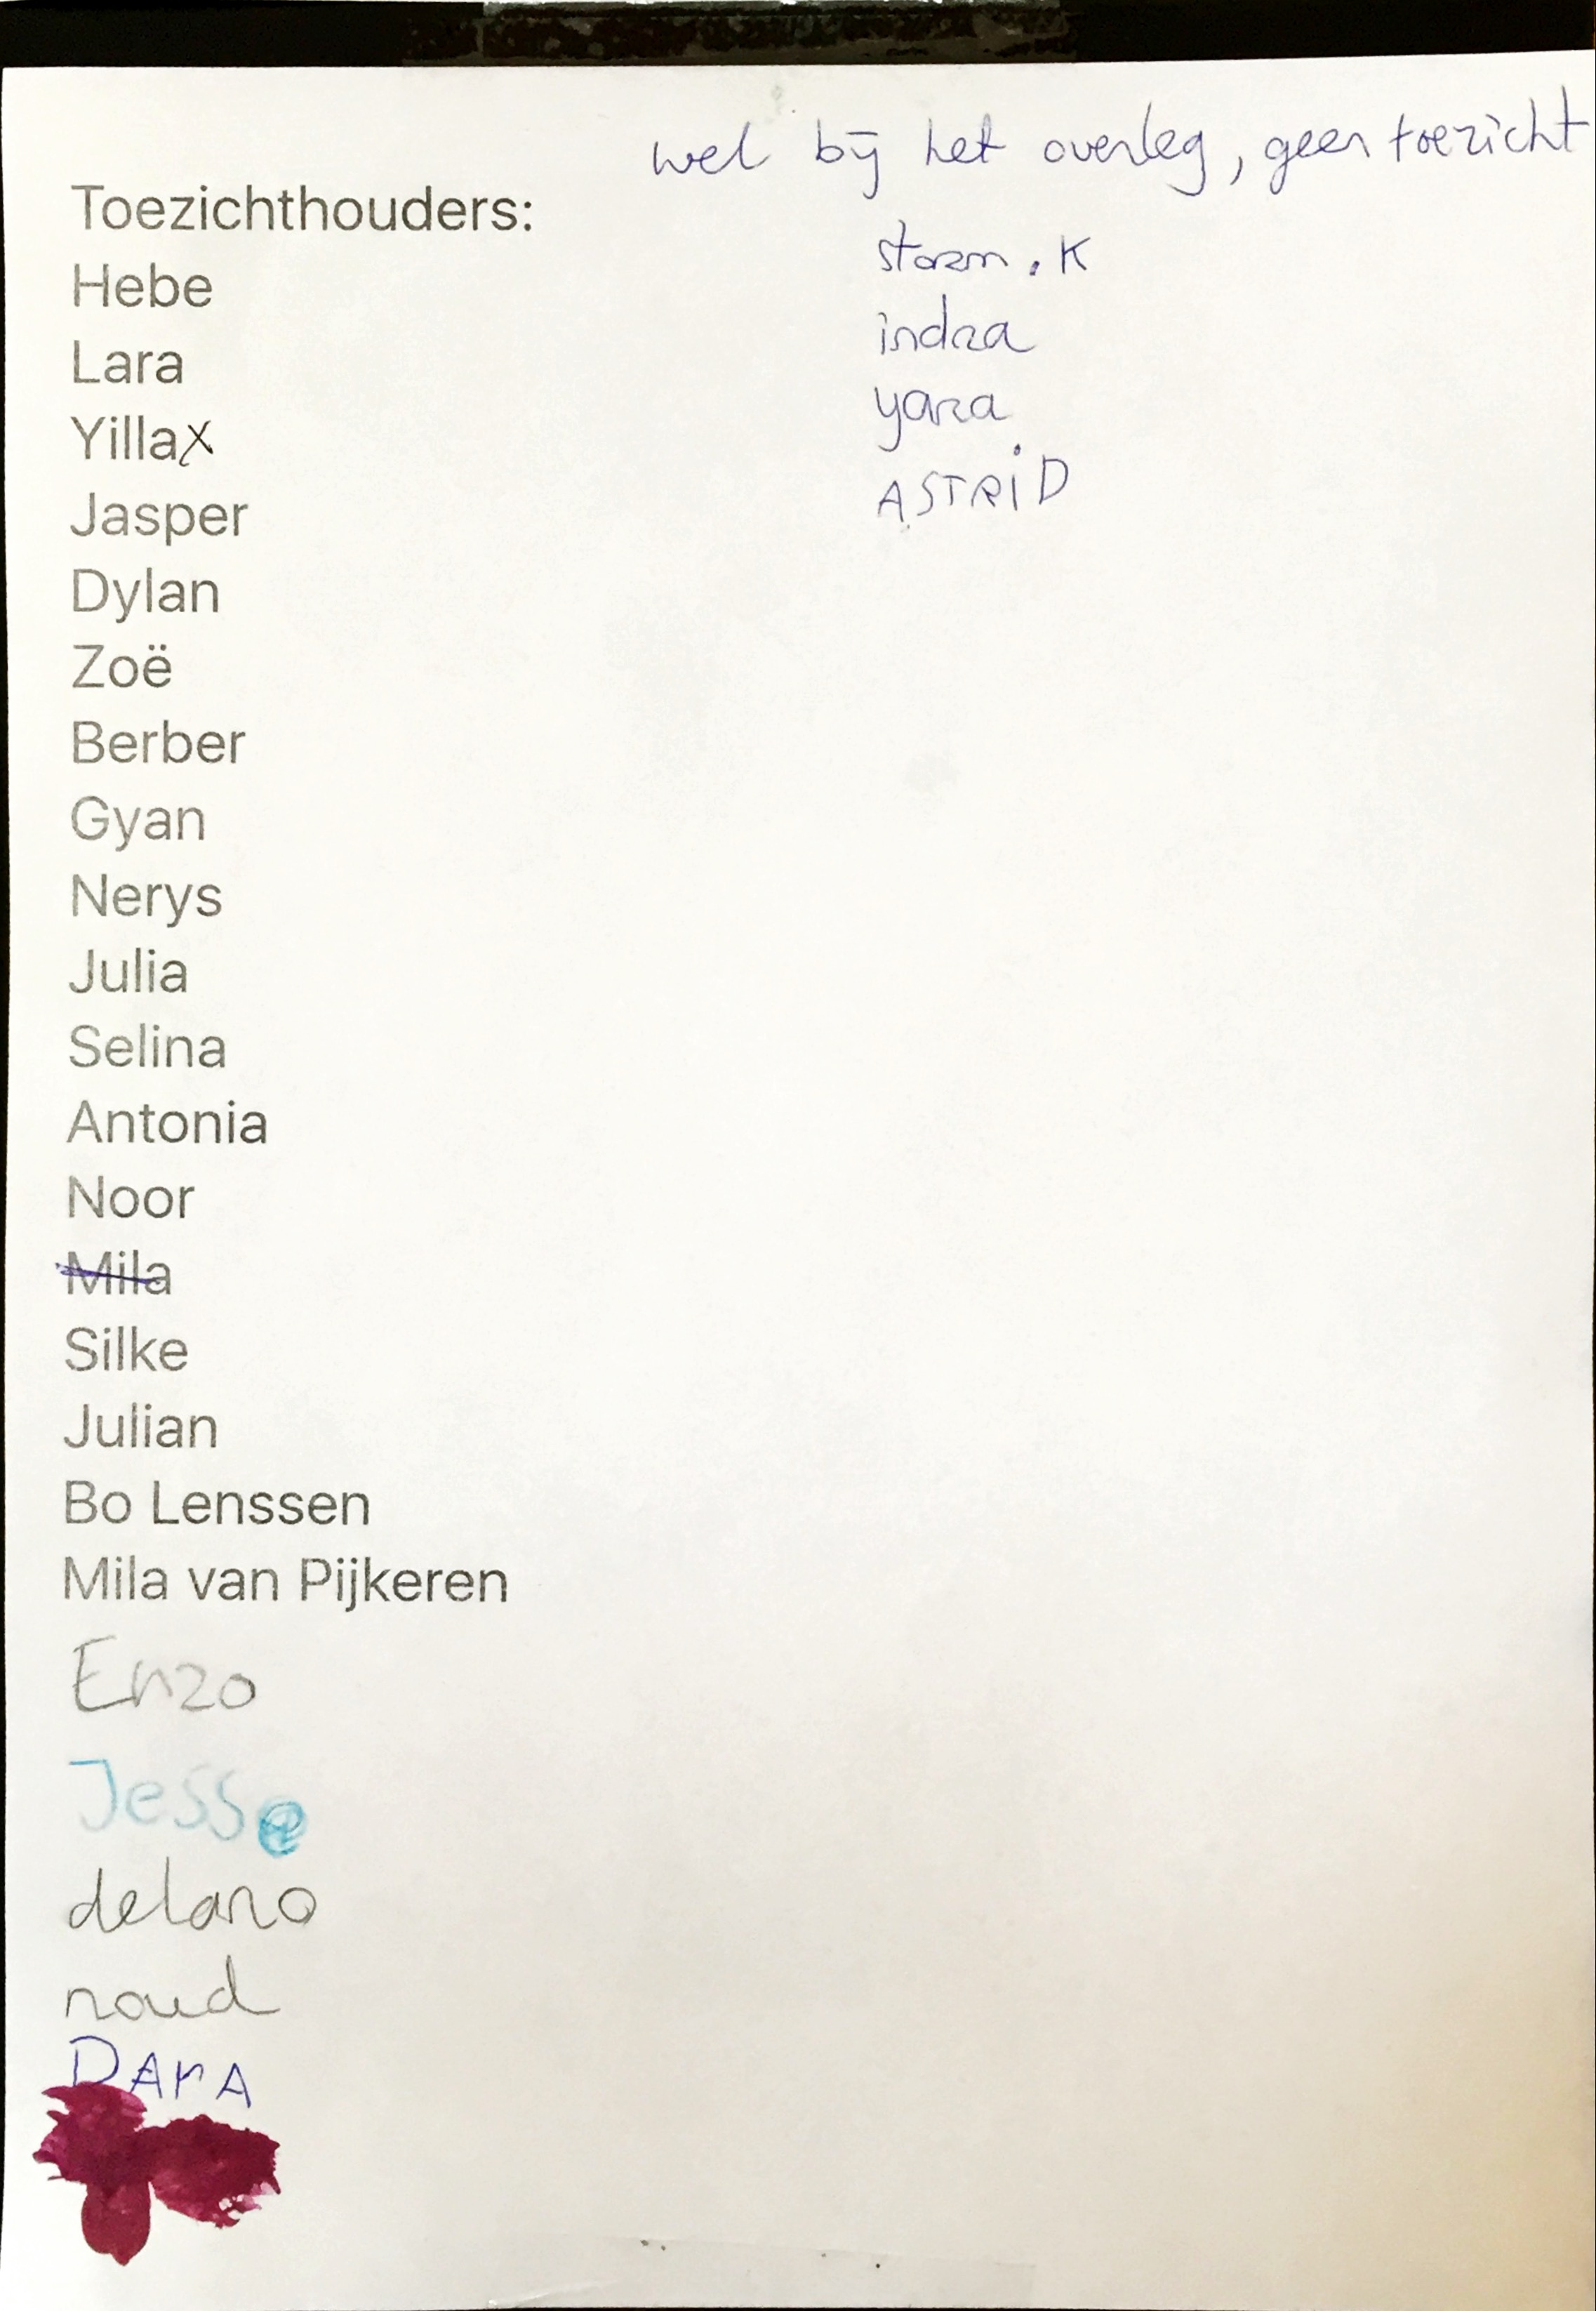 Toezichthouders:
Hebe
Lara
Yillax
Jasper
Dylan
Zoë
Berber
Gyan
Nerys
Julia
Selina
Antonia
Noor
Mila
Silke
Julian
Bo Lenssen
Mila van Pijkeren
Enzo
Jesse
delano
noud
DArA
wel bij het overleg, geen toezicht
storm. K
indra
yara
ASTRiD